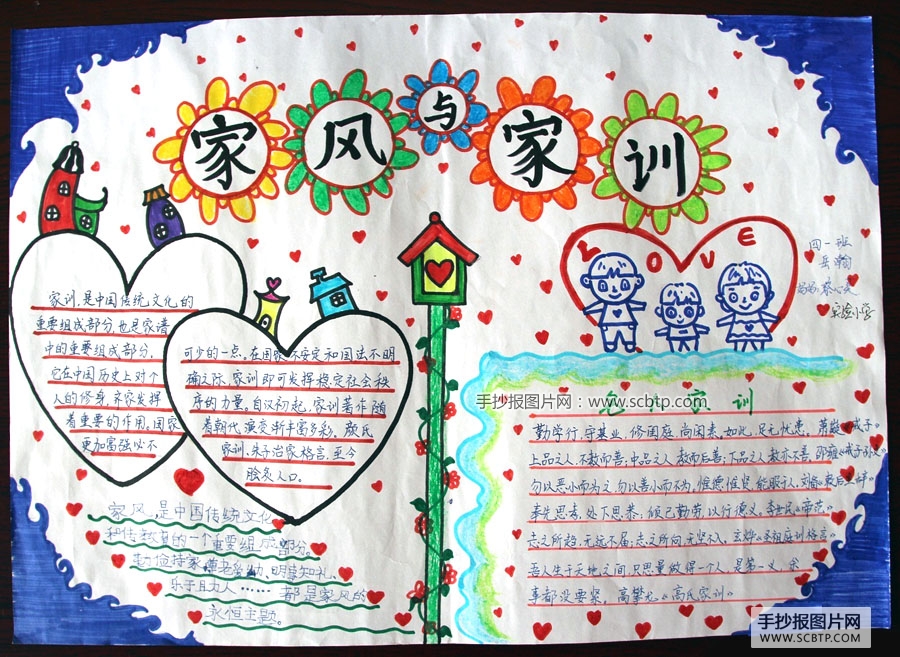 家风与家训
LOVE
四一班
实验小学
家训,是中国传统文化的
重要组成部分,也是家谱
中的重要组成部分,
它在中国历史上对个
人的修身、齐家发挥
着重要的作用。国家
更加富强以不
可少的一点。在国家不安定和国法不明
确之际,家训即可发挥稳定社会秩
序的力量。自汉初起,家训著作随
着朝代演变渐丰富多彩。颜氏
家训、朱子治家格言,至今
脍炙人口。
手抄报图片网:www.scbtp.com
家训
勤学行,守基业,修闺庭,尚闲素。如此,足无忧患。萧嶷《戒子》
上品之人,不教而善;中品之人,教而后善;下品之人,教亦不善。邵雍《戒子孙文》
勿以恶小而为之,勿以善小而不为,惟德惟贤,能服于人。刘备《敕后主》
奉先思孝,处下思恭;倾己勤劳,以行德义。李世民《帝范》
志之所趋,无远不届;志之所向,无坚不入。玄烨《圣祖庭训格言》
吾人生于天地之间,只思量做得一个人,是第一义,余
事都没要紧。高攀龙《高氏家训》
家风,是中国传统文化
和传教育的一个重要组成部分。
勤俭持家,尊老爱幼,明事知礼、
乐于助人……都是家风的
永恒主题。
手抄报图片网
WWW.SCBTP.COM